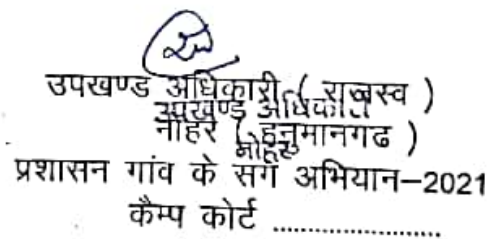 उपखण्ड अधिकारी ( राजस्व )
उपखण्ड अधिकारी
नोहर ( हनुमानगढ )
नोहर
प्रशासन गांव के संग अभियान–2021
कैम्प कोर्ट ......................